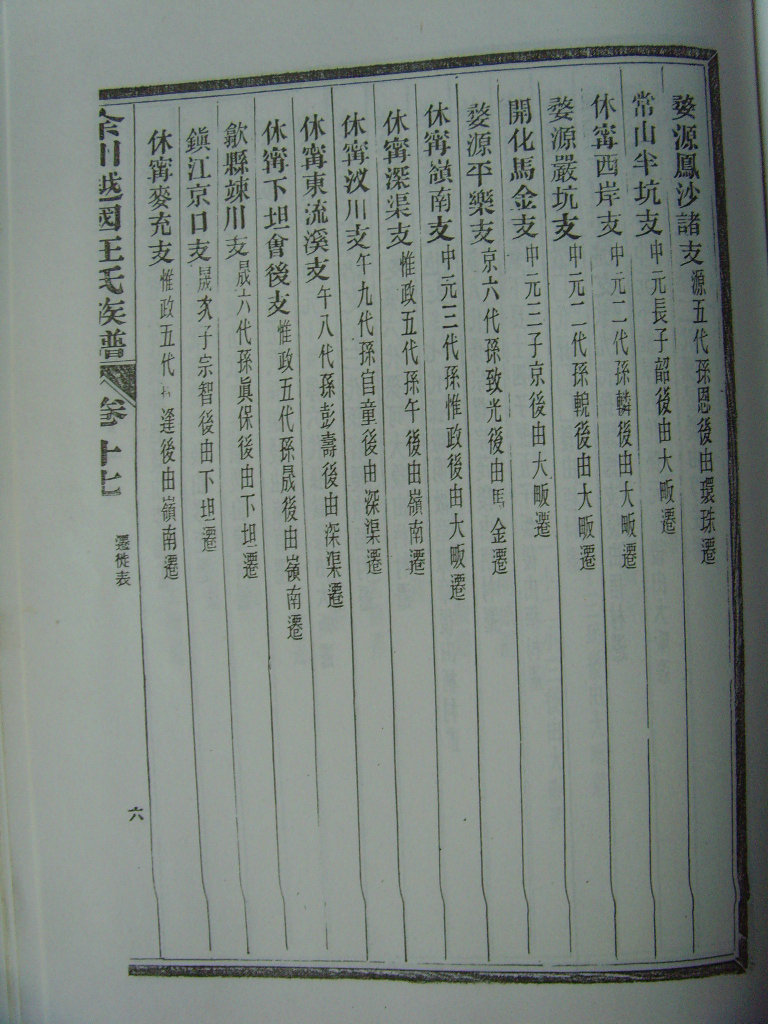 婺源鳳沙諸支源五代孫恩後由環珠遷
常山半坑支中元長子韶後由大畈遷
休甯西岸支中元二代孫麟後由大畈遷
婺源嚴坑支中元二代孫輗後由大畈遷
開化馬金支中元三子京後由大畈遷
婺源平樂支京六代孫致光後由馬金遷
休甯嶺南支中元三代孫惟政後由大畈遷
休甯深渠支惟政五代孫午後由嶺南遷
休甯汶川支午九代孫官童後由深渠遷
休甯東流溪支午八代孫彭壽後由深渠遷
休甯下坦會後支惟政五代孫晟後由嶺南遷
歙縣竦川支晟六代孫眞保後由下坦遷
鎭江京口支晟次子宗智後由下坦遷
休甯麥充支惟政五代孫逢後由嶺南遷
余川越國汪氏族譜 卷十七 遷徙表 六